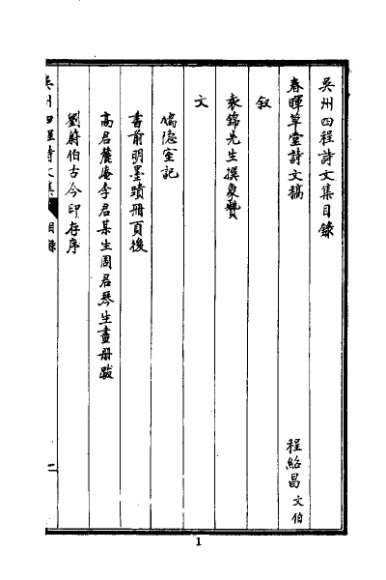 吳州四程詩文集目錄
春暉草堂詩文稿
程紹昌文伯
敘
袁錦先生撰象贊
文
鳩隱室記
書前明墨蹟冊頁後
高君麓庵李君某生周君琴生畫冊跋
劉蔚伯古今印存序
吳州四程詩文集
目錄
一
1